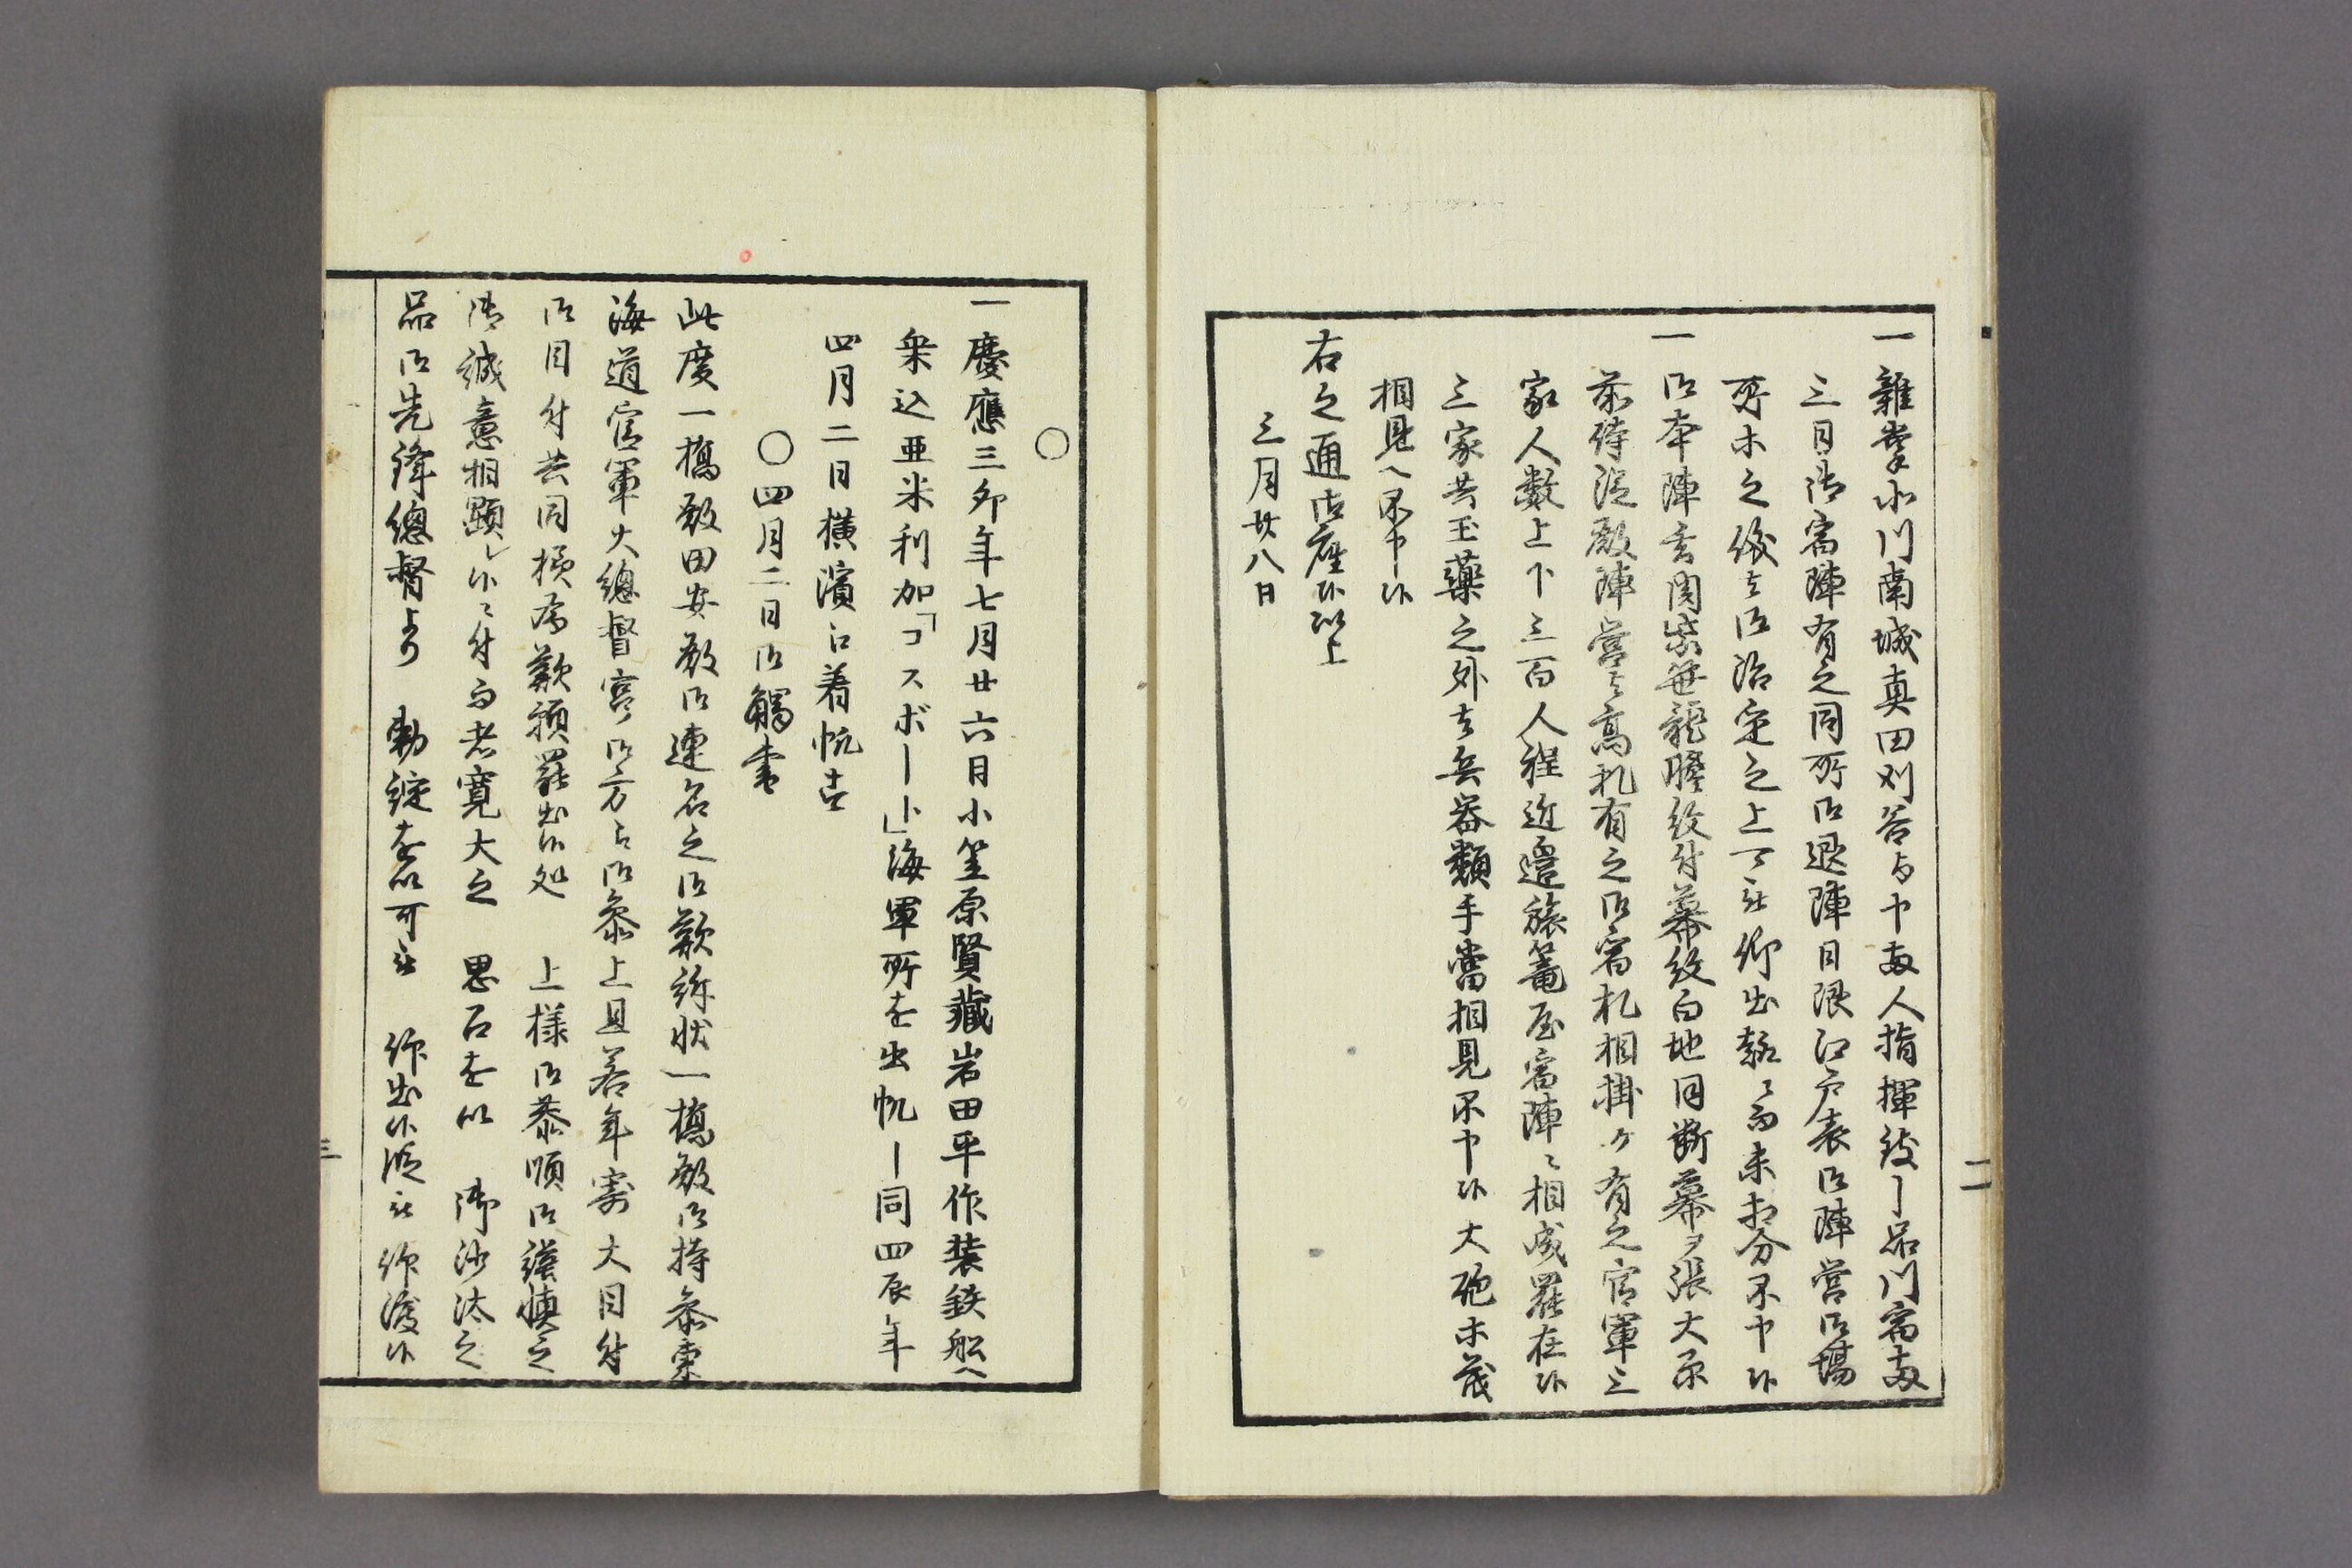 一雑掌小川南城真田刈谷与申両人指揮致し品川宿両
三日御宿陣有之同所御退陣日限江戸表御陣営御場
所等之儀者御治定之上可被仰出趣ニ而未相分不申候
一御本陣玄関紫笹龍膽紋付幕紋白地同断幕ヲ張大原
前侍従殿陣営与高札有之御宿札相掛ケ有之官軍三
家人数上下三百人程近邊旅籠屋宿陣ニ相成罷在候
三家共玉薬之外者兵器類手當相見不申候大砲等茂
相見へ不申候
右之通御座候以上
三月廿八日
二
○
一慶應三卯年七月廿六日小笠原賢蔵岩田平作装鉄船へ
乗込亜米利加「コスボート」海軍所を出帆し同四辰年
四月二日横濱江着帆す
○四月二日御觸書
此度一橋殿田安殿御連名之御歎訴状一橋殿御持参東
海道官軍大總督宮御方江御参上且若年寄大目付
御目付共同様為歎願罷出候処 上様御恭順御謹慎之
御誠意相顕レ候ニ付而者寛大之 思召を以 御沙汰之
品御先鋒總督より 勅綻を以可被 仰出候段被 仰渡候
三